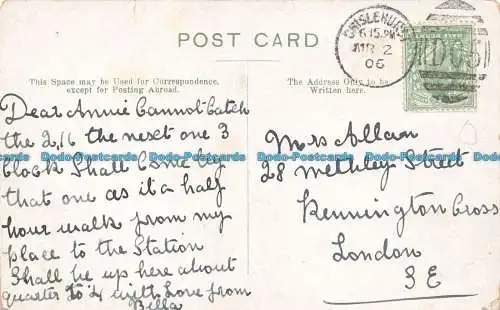 POST CARD
CHISLEHURST
6 15 PM
2
06
D05
This Space may be Used for Correspondence,
except for Posting Abroad.
The Address Only to be
Written here.
Dear Annie Cannot Catch
the 2,16 the next one 3
Clock Shall Come by
that one as it a half
hour walk from my
place to the Station
Shall be up here about
quarter to 4 with Love from
Bella
Mrs Allam
28 Street
Kennington Cross
London
S E
Dodo-Postcards Dodo-Postcards Dodo-Postcards Dodo-Postcards